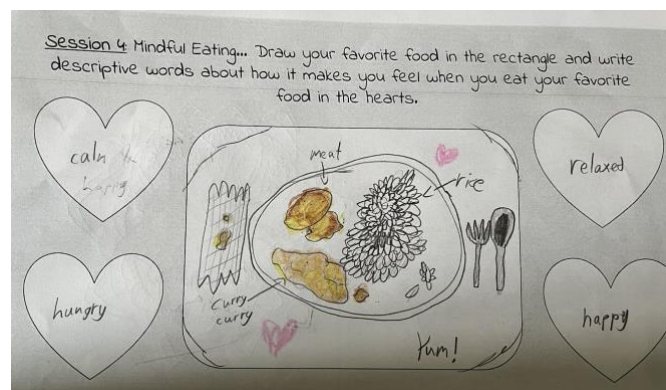 Session 4 Mindful Eating... Draw your favorite food in the rectangle and write
descriptive words about how it makes you feel when you eat your favorite
food in the hearts.
caln
happy
meat
rice
relaxed
hungry
curry
curry
Yum!
happy